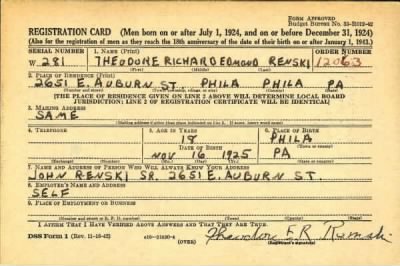 FORM APPROVED
BUDGET BUREAU NO. 33-R012-42
REGISTRATION CARD (Men born on or after July 1, 1924, and on or before December 31, 1924)
(Also for the registration of men as they reach the 18th anniversary of the date of their birth on or after January 1, 1943.)
SERIAL NUMBER 1. NAME (Print) ORDER NUMBER
W 281 THEODORE RICHARD EDMOND RENSKI 12063
(First) (Middle) (Last)
2. PLACE OF RESIDENCE (Print)
2651 E. AUBURN ST. PHILA PHILA PA
(Number and street) (Town, township, village, or city) (County) (State)
[THE PLACE OF RESIDENCE GIVEN ON LINE 2 ABOVE WILL DETERMINE LOCAL BOARD
JURISDICTION; LINE 2 OF REGISTRATION CERTIFICATE WILL BE IDENTICAL]
3. MAILING ADDRESS
SAME
4. TELEPHONE 5. AGE IN YEARS 6. PLACE OF BIRTH
18 PHILA
DATE OF BIRTH
NOV 16 1925 PA
(Exchange) (Number) (Mo.) (Day) (Yr.) (State or country)
7. NAME AND ADDRESS OF PERSON WHO WILL ALWAYS KNOW YOUR ADDRESS
JOHN RENSKI SR. 2651 E. AUBURN ST.
8. EMPLOYER'S NAME AND ADDRESS
SELF
9. PLACE OF EMPLOYMENT OR BUSINESS
(Number and street or R. F. D. number) (Town) (County) (State)
I AFFIRM THAT I HAVE VERIFIED ABOVE ANSWERS AND THAT THEY ARE TRUE.
DSS Form 1 (Rev. 11-16-42) (OVER) Theodore E. R. Renski
(Registrant's signature)